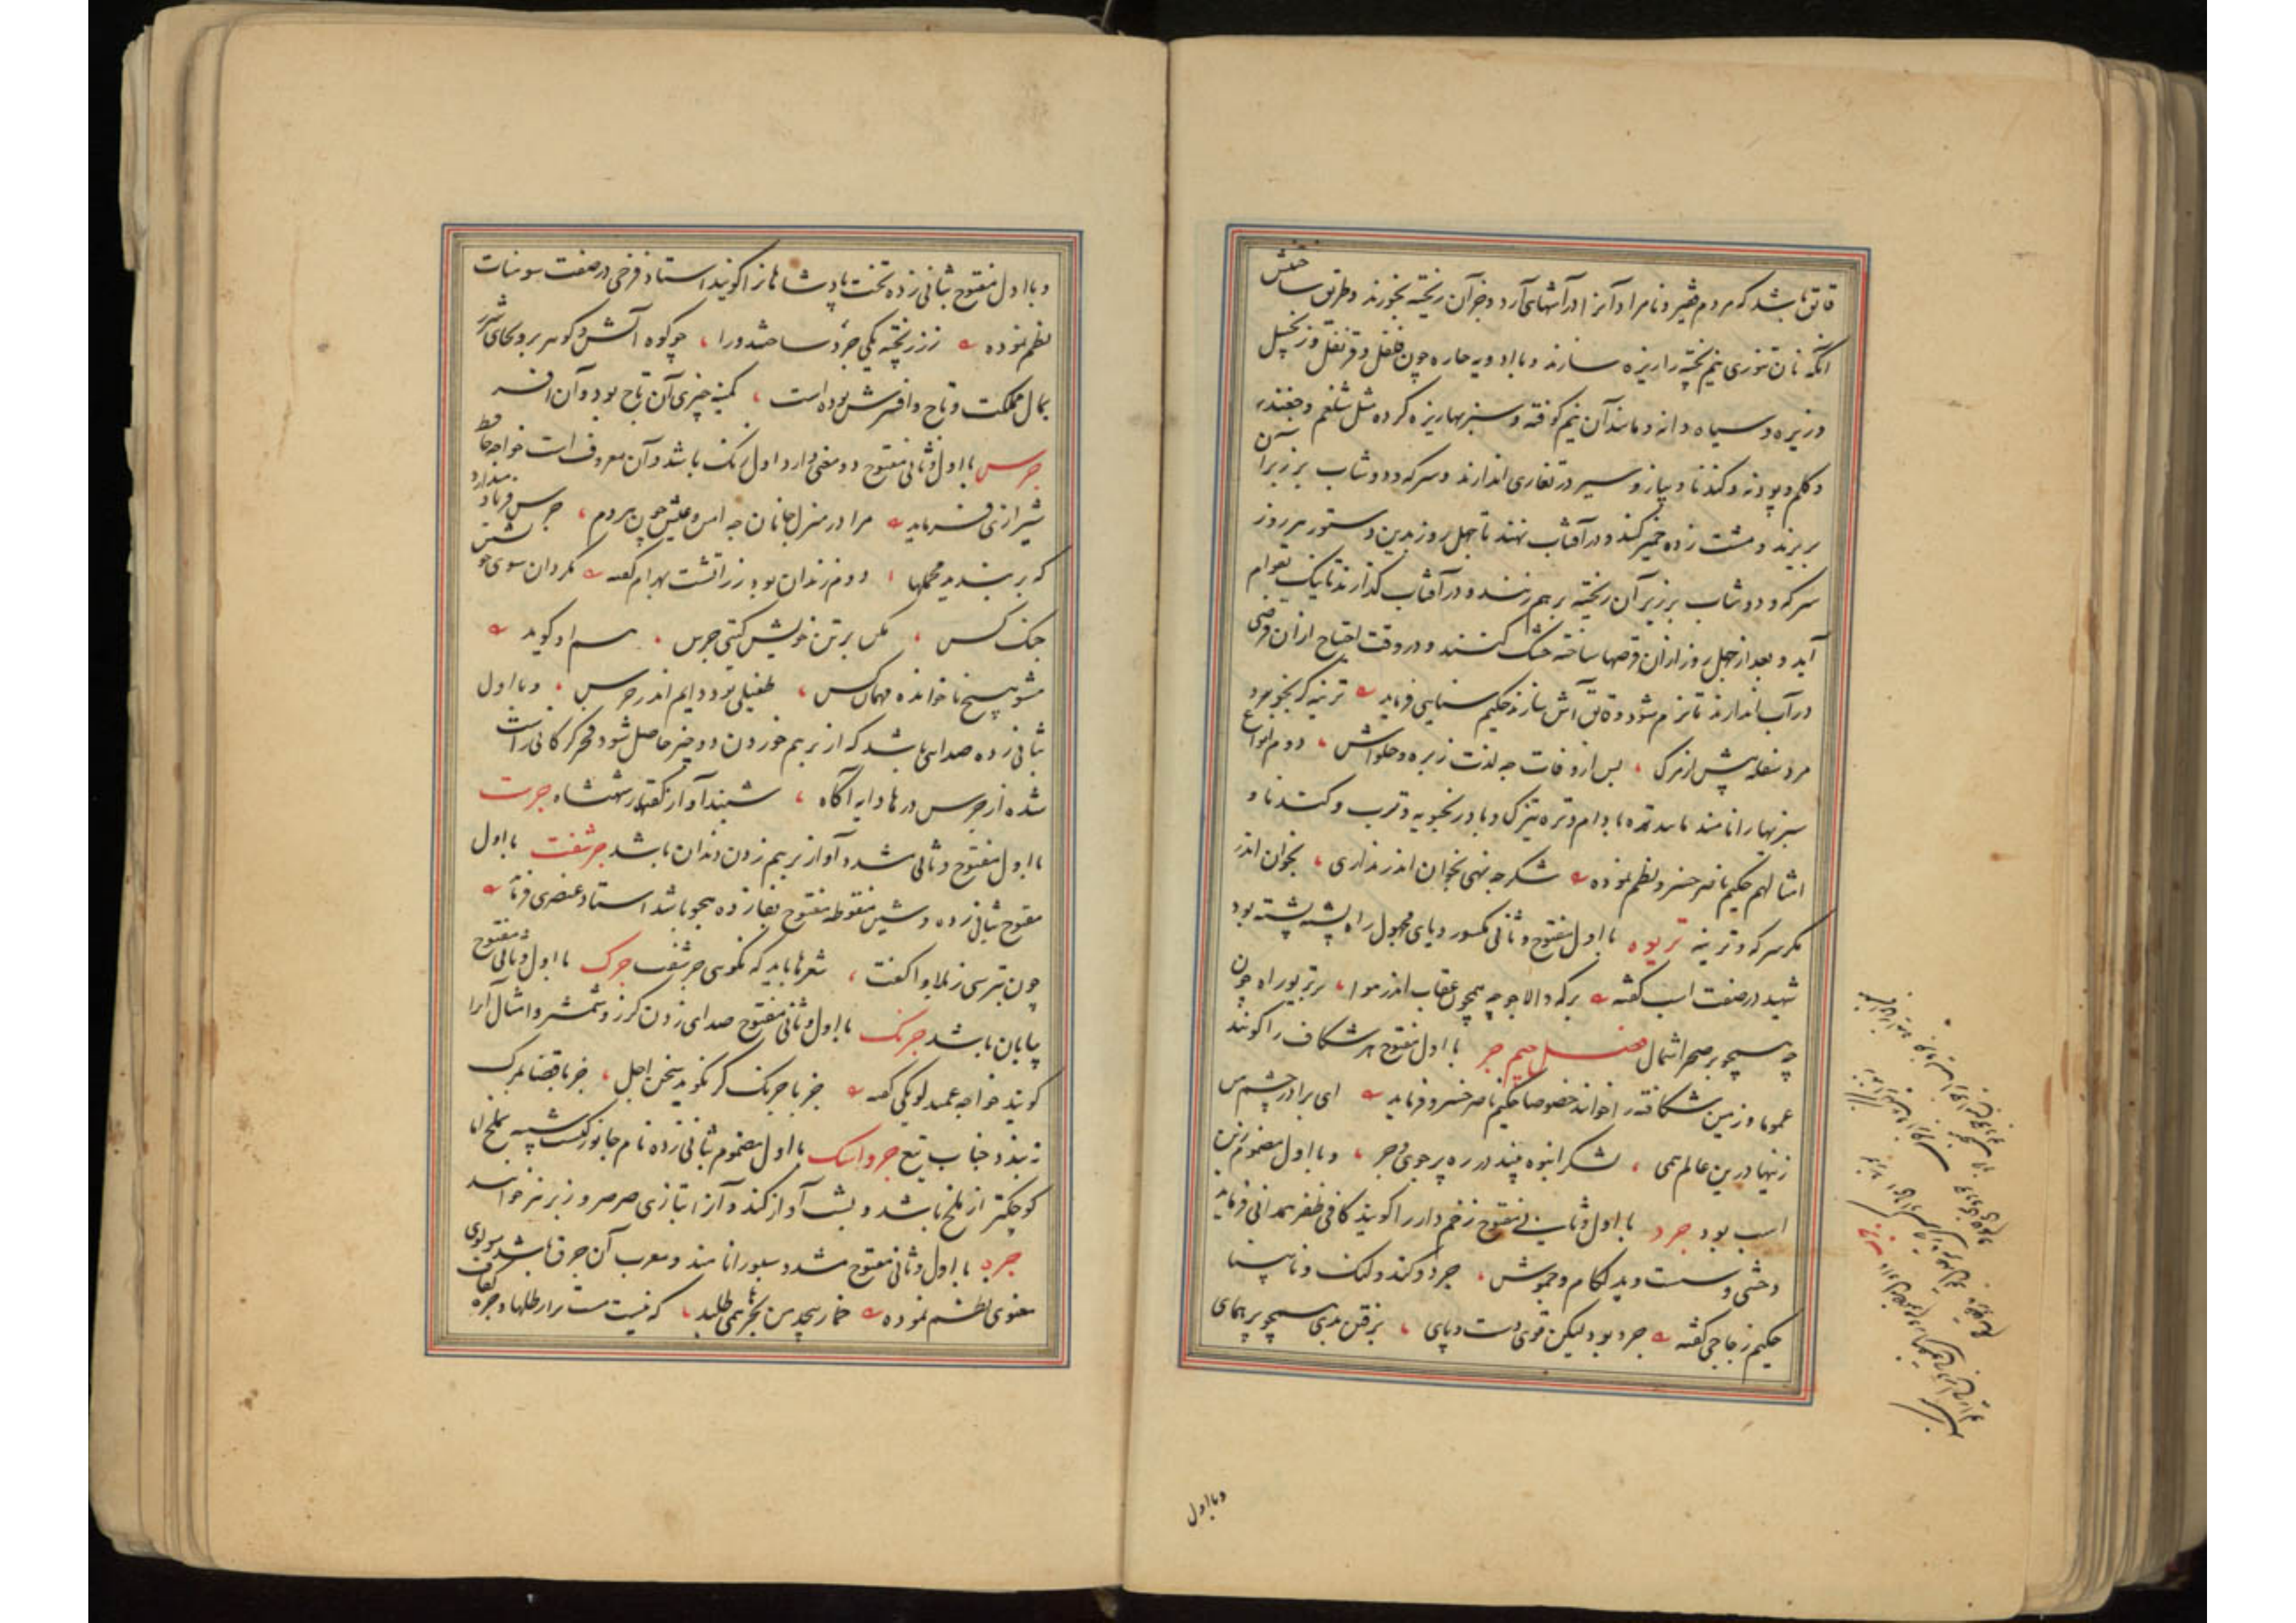 قاتق باشد که مردم فقیر و نامراد آنرا در آشهای آرد و جز آن ریخته بخورند و طریق ساختنش
آنکه نان تنوری نیم پخته را ریزه سازند و با ادویه حاره چون فلفل و قرنفل و زنجبیل
و زیره و سیاه دانه و مانند آن نیم کوفته و سبزیها ریزه کرده مثل شلغم و چغندر
و کلم و پودنه و کندنا و پیاز و سیر در تغاری اندازند و سرکه و دوشاب بر زبر آن
بریزند و مشت زده خمیر کنند و در آفتاب نهند تا چهل روز بدین دستور هر روز
سرکه و دوشاب بر زبر آن ریخته بر هم زنند و در آفتاب گذارند تا نیک بقوام
آید و بعد از چهل روز ازان قرصها ساخته خشک کنند و در وقت احتیاج ازان قرصی
در آب اندازند تا نرم شود و قاتق آش سازند حکیم سنایی فرماید ترینه گر نخورد
مرد سفله پیش از مرگ ، پس از وفات چه لذت زیره و حلواش ، دوم انواع
سبزیها را نامند مانند تره بادام و تره تیزک و بادرنجبویه و ترب و کندنا و
امثالهم حکیم ناصر خسرو نظم نموده شکر چه نهی بخوان اندر نداری ، بخوان اندر
مگر سرکه و ترینه تریوه با اول مفتوح و ثانی مکسور و یای مجهول راه پشته پشته بود
شهید در صفت اسب گفته برکه و الا چو چه همچون عقاب اندر هوا ، بر تریوه راه چون
چه همچو بر صحرا شمال فصل جیم جر با اول مفتوح هر شکاف را گویند
عموما و زمین شکافته را خوانند خصوصا حکیم ناصر خسرو فرماید ای برادر چشم من
زینها درین عالم همی ، لشکر انبوه بیند در ره پر جوی و جر ، و با اول مضموم زین
اسب بود جرد با اول و ثانی مفتوح زخم دار را گویند کافی ظفر همدانی فرماید
وحشی و سست و بد لگام و چموش ، جرد و کند و لنگ و نابینا
حکیم زجاجی گفته جرد بود لیکن قوی دست و پای ، برفتن بدی همچو پر همای
و با اول
و با اول مفتوح بثانی زده تخت پادشاهان را گویند استاد فرخی در صفت سومنات
نظم نموده ز زر پخته یکی جرد ساخته او را ، چو کوه آتش و گوهر برو بجای شرر
بمال مملکت و تاج و افسرش بوده است ، کمینه چیزی آن تاج بود و آن افسر
جرس با اول و ثانی مفتوح دو معنی دارد اول زنگ باشد و آن معروف است خواجه حافظ
شیرازی فرماید مرا در منزل جانان چه امن و عیش چون هر دم ، جرس فریاد میدارد
که بربندید محملها ، دوم زندان بود زراتشت بهرام گفته مگردان سوی خویشتن
جنگ کس ، مکن بر تن خویش گیتی جرس ، هم او گوید
مشو هیچ ناخوانده مهمان کس ، طفیلی بود دایم اندر جرس ، و با اول
بثانی زده صدایی باشد که از بر هم خوردن دو چیز حاصل شود فخر گرگانی راست
شده از جرس درها دایه آگاه ، شنیدآواز گفتار شهنشاه جرست
با اول مفتوح و ثانی مشدد آواز بر هم زدن دندان باشد جرشفت با اول
مفتوح بثانی زده و شین منقوطه مفتوح بفا زده هجو باشد استاد عنصری فرماید
چون بترسی ز بلا وا گفت ، شعرها باید که نگوسی جرشفت جرک با اول و ثانی مفتوح
پایان باشد جرنگ با اول و ثانی مفتوح صدای زدن گرز و شمشیر و امثال آنرا
گویند خواجه عمید لویکی گفته جز با جرنگ گرز نگوید سخن اجل ، جز با قضا مرگ
نه بندد جناب تیغ جرواسک با اول مضموم بثانی زده نام جانوریست شبیه بملخ اما
کوچکتر از ملخ باشد و بشب آواز کند و آنرا بتازی صرصر و زیز نیز خوانند
جره با اول و ثانی مفتوح مشدد سبو را نامند و معرب آن جرق باشد مولوی
معنوی نظم نموده خمار بیحد من بحرها همی طلبد ، که نیست مست ترا رطلها و جره کفاف